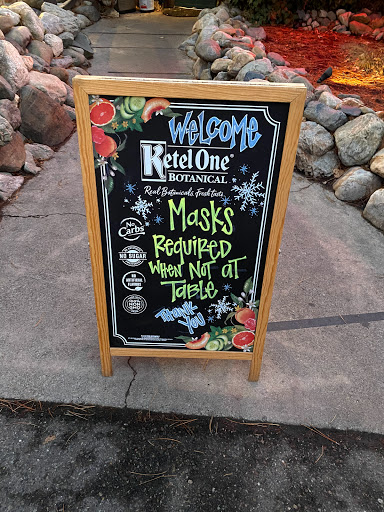 WELCOME
Ketel One®
BOTANICAL
Real Botanicals. Fresh taste.
MASKS
REQUIRED
WHEN NOT AT
TABLE
THANK
YOU
No
Carbs
NO SUGAR
NO ARTIFICIAL
FLAVORS